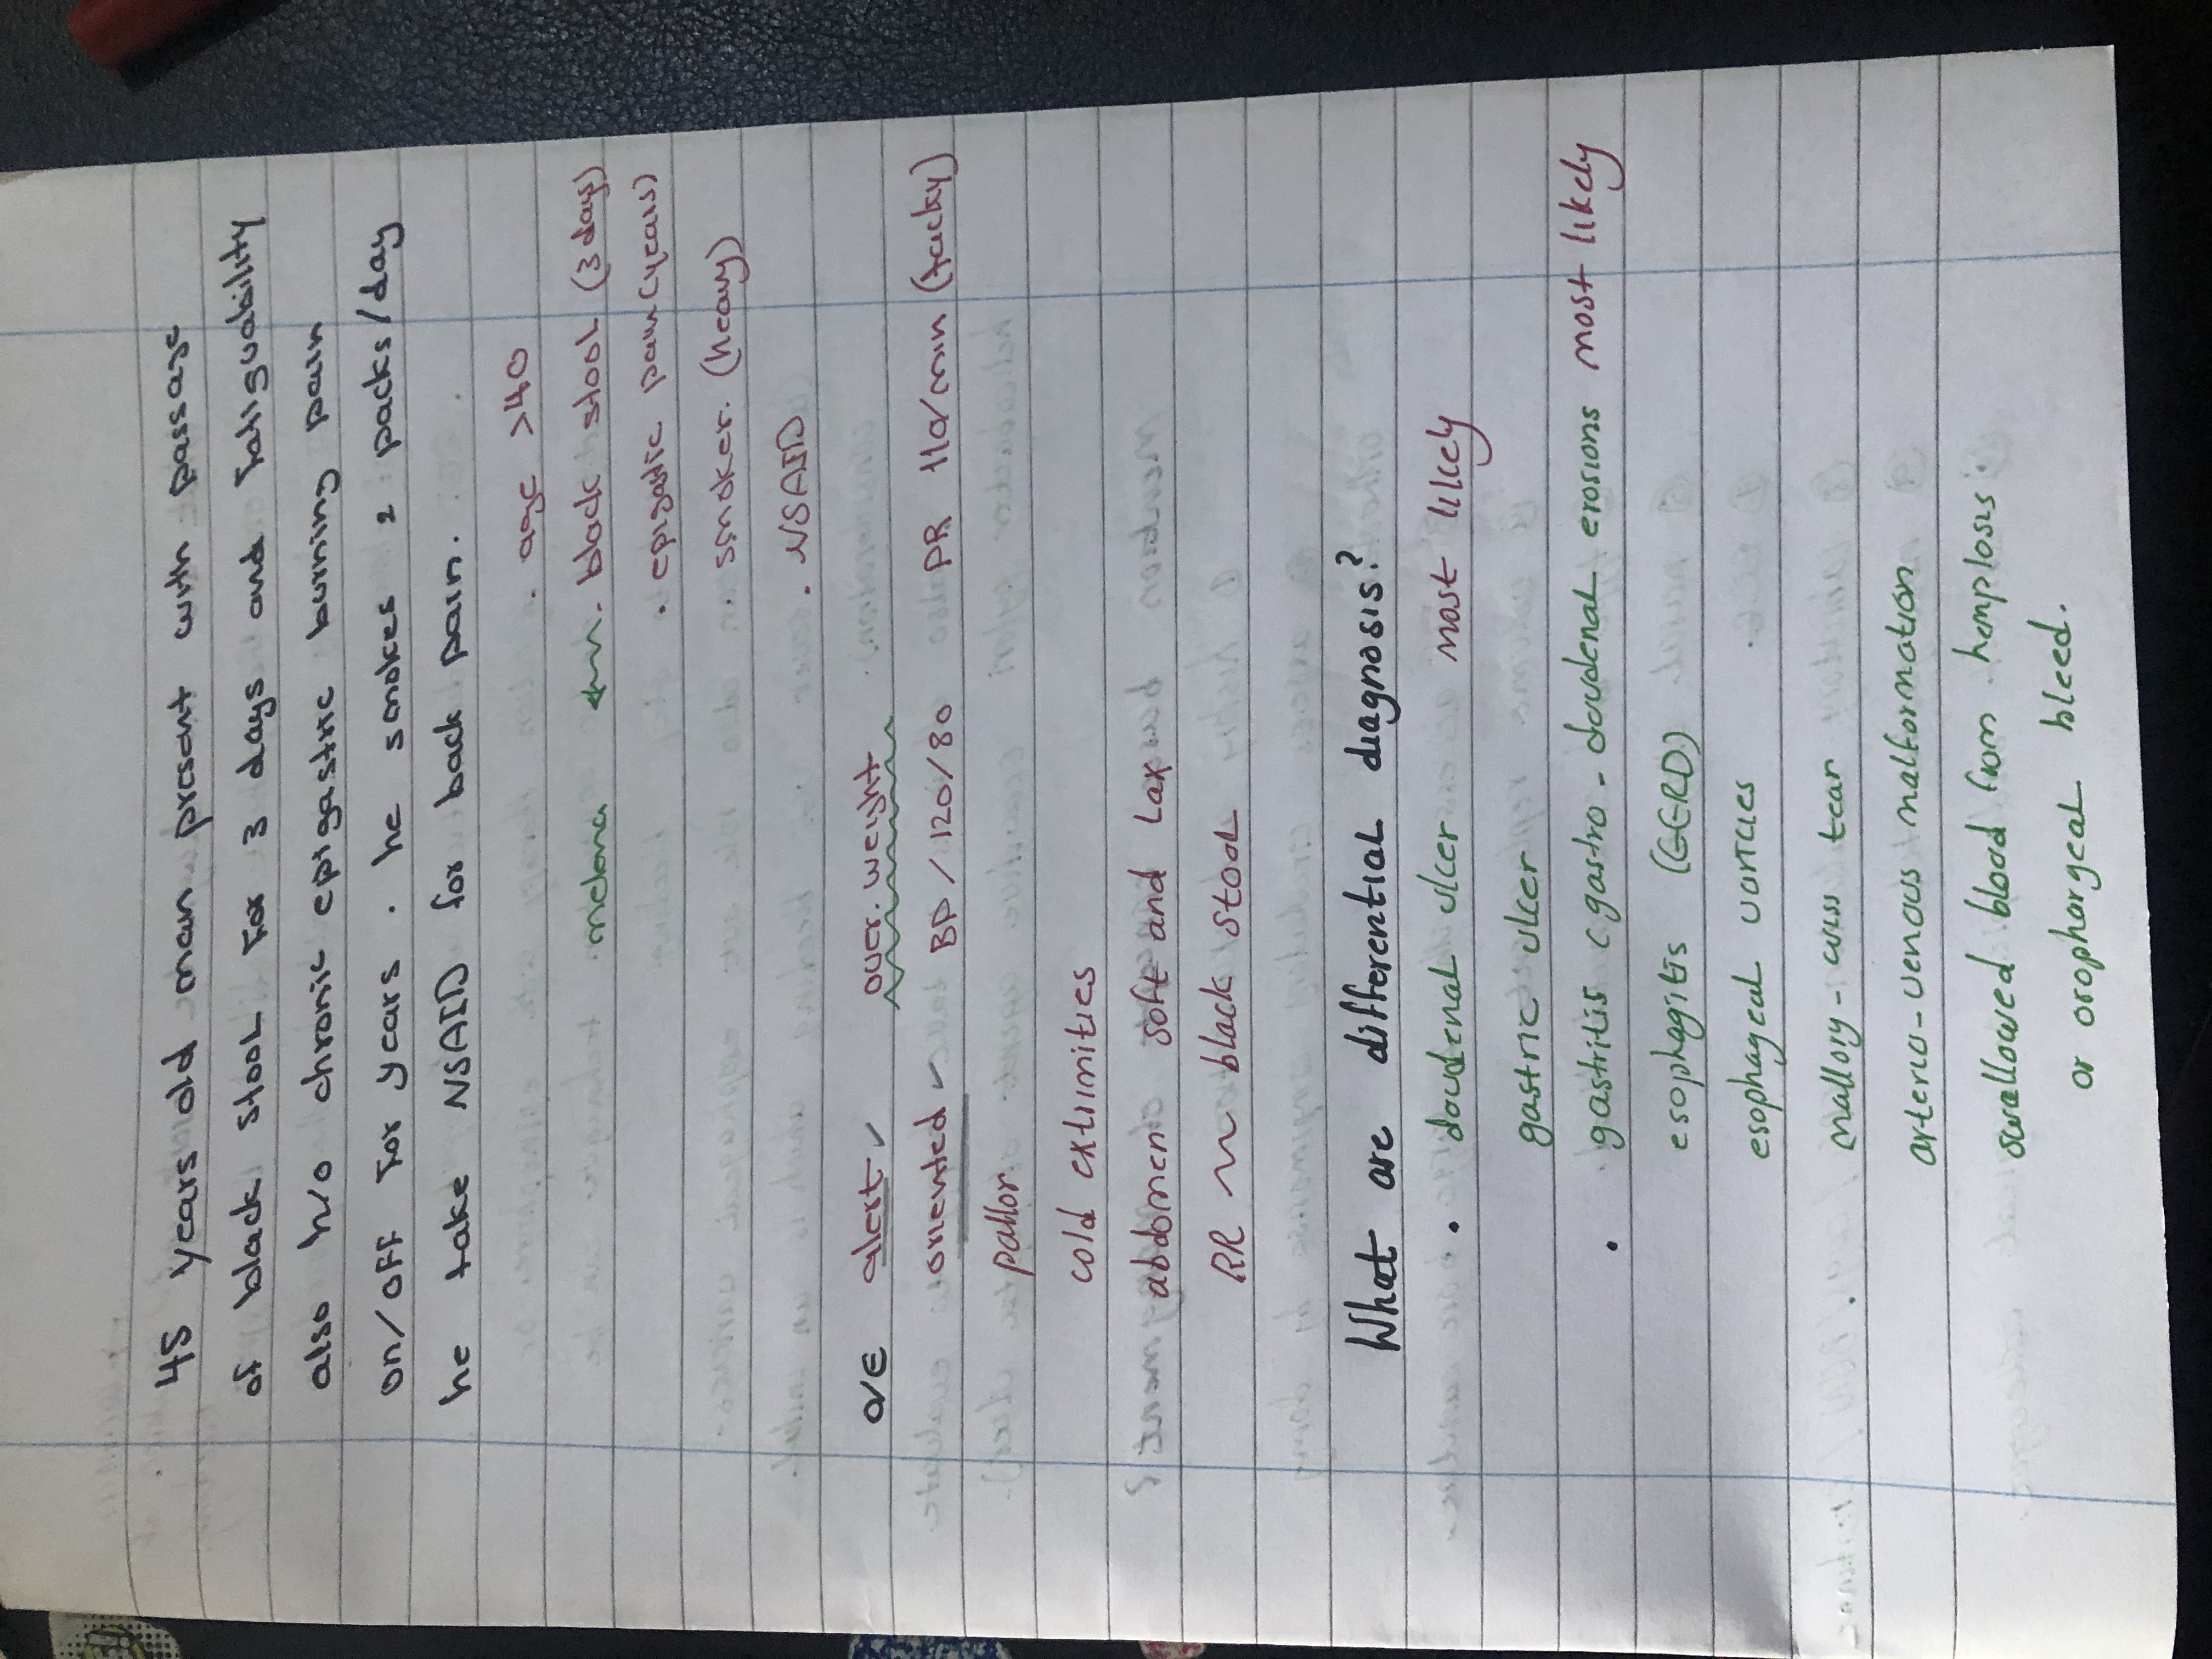 45 years old man present with passage
of black stool for 3 days and fatiguability
also h/o chronic epigastric burning pain
on/off for years. he smokes 2 packs/day
he take NSAID for back pain.
. age >40
melena . black stool (3 days)
. epigastric pain (years)
. smoker. (heavy)
. NSAID
O/E alert ✓ over.weight
oriented ✓ BP/120/80 PR 110/min (tachy)
pallor
cold extrimities
abdomen soft and Lax
RR ~ black stool
What are differential diagnosis?
. doudenal ulcer most likely
gastric ulcer
. gastritis (gastro-doudenal erosions most likely
esophagitis (GERD)
esophageal varices
. mallory-wiss tear
arterio-venous malformation
swallowed blood from hemplosis
or orophargeal bleed.